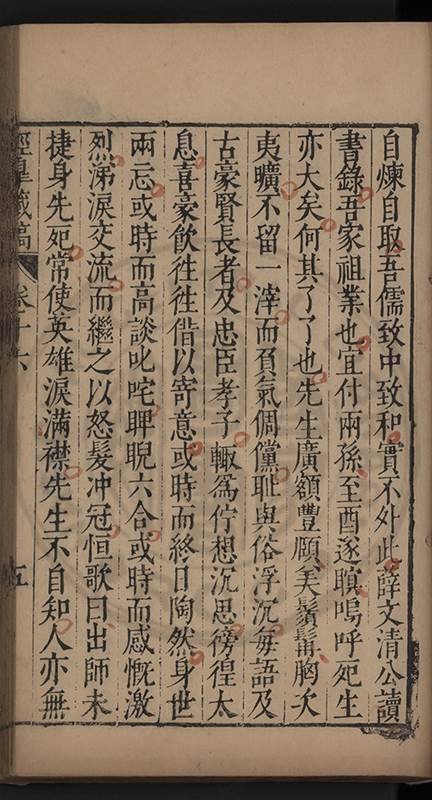 自煉自取吾儒致中致和實不外此薛文清公讀
書錄吾家祖業也宜付兩孫至酉遂瞑嗚呼死生
亦大矣何其了了也先生廣額豐頤美鬚髯胸次
夷曠不留一滓而負氣倜儻耻與俗浮沉每語及
古豪賢長者及忠臣孝子輙爲佇想沉思徬徨太
息喜豪飲徃徃借以寄意或時而終日陶然身世
兩忘或時而高談叱咤睥睨六合或時而感慨激
烈涕淚交流而繼之以怒髮冲冠恒歌曰出師未
捷身先死常使英雄淚滿襟先生不自知人亦無
經皐藏稿 卷十六 五